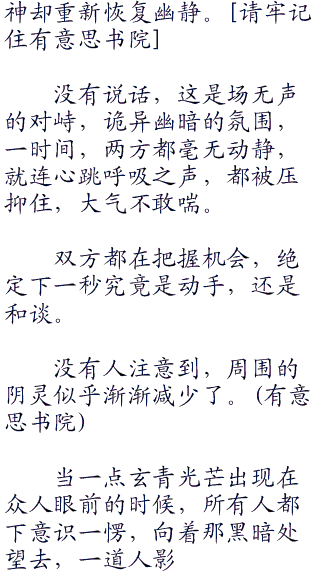 神却重新恢复幽静。[请牢记
住有意思书院]
没有说话，这是场无声
的对峙，诡异幽暗的氛围，
一时间，两方都毫无动静，
就连心跳呼吸之声，都被压
抑住，大气不敢喘。
双方都在把握机会，绝
定下一秒究竟是动手，还是
和谈。
没有人注意到，周围的
阴灵似乎渐渐减少了。(有意
思书院)
当一点玄青光芒出现在
众人眼前的时候，所有人都
下意识一愣，向着那黑暗处
望去，一道人影